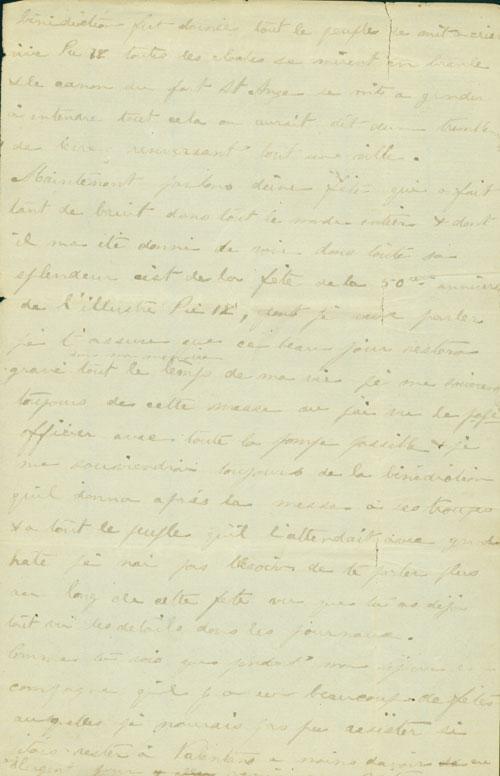 bénédiction fut donnée tout le peuple se mit a crier
vive Pie IX toutes les cloches se mirent en branle
& le canon du fort St Ange se mit a gronder
a entendre tout cela on aurait dit dun tremble
de terre renversant tout une ville.
Maintenant parlons d'une fête qui a fait
tant de bruit dans tout le monde entier & dont
il ma été donné de voir dans toute sa
splendeur cest de la fête de la 50ème anniver
de l'illustre Pie IX, dont je veux parler
je t'assure que ce beau jour restera
dans ma mémoire
gravé tout le temps de ma vie je me souviens
toujours de cette messe ou jai vu le pape
officier avec toute la pompe possible & je
me souviendrai toujours de la bénédiction
qu'il donna après la messe a ses troupes
& a tout le peuple qu'il l'attendait avec grande
hate je nai pas besoin de te parler plus
au long de cette fete vu que tu as déjà
tout vu les details dans les journaux.
Comme tu sais que pendant mon séjour
campagne qu'il y a eu beaucoup de fêtes
auquelles je naurais pas pu assister si
jétais rester à a moins davoir
l'argent pour